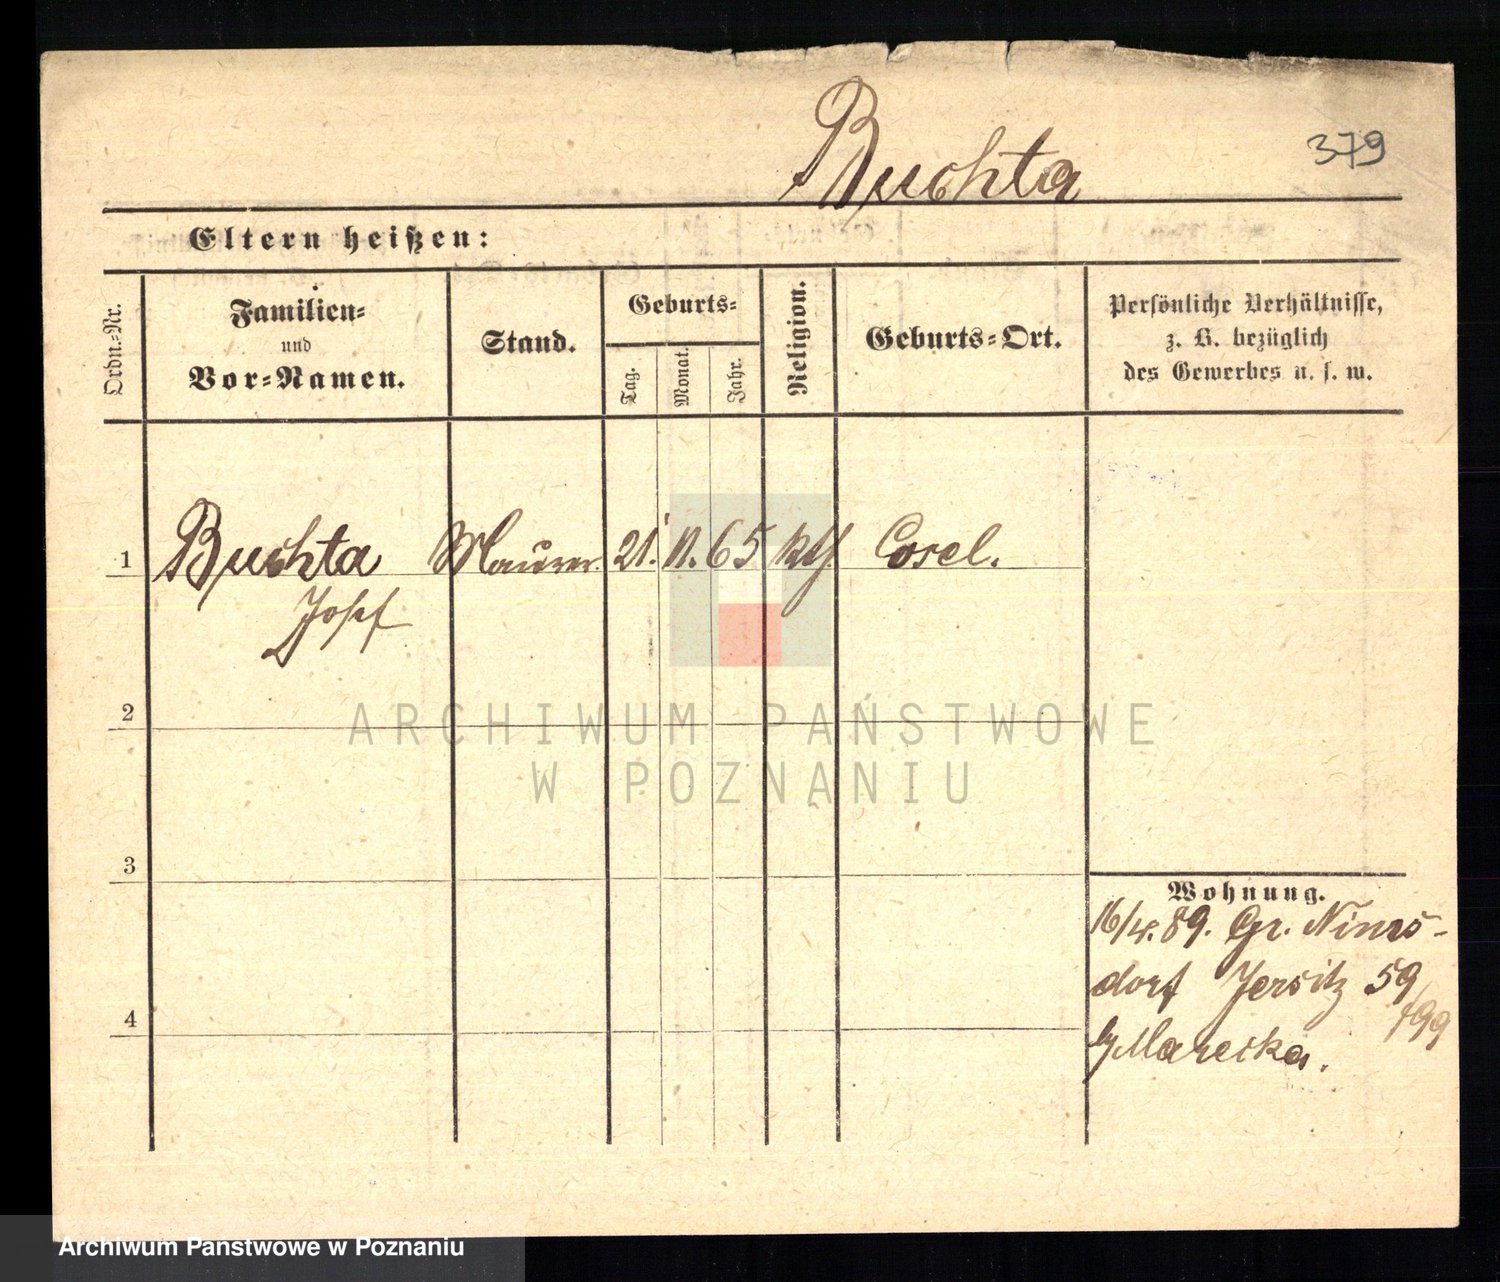 Buchta
379
Eltern heißen:
Ordn.-Nr.
Familien-
und
Vor-Namen.
Stand.
Geburts-
Tag.
Monat.
Jahr.
Religion.
Geburts-Ort.
Persönliche Verhältnisse,
z. B. bezüglich
des Gewerbes u. s. w.
1 Buchta Maurer 21. 11. 65 kth Cosel.
Josef
2
3
4
Wohnung.
89. Gr. Nims-
dorf Jersitz 59
/99
b/ Mareska.
ARCHIWUM PAŃSTWOWE
W POZNANIU
Archiwum Państwowe w Poznaniu